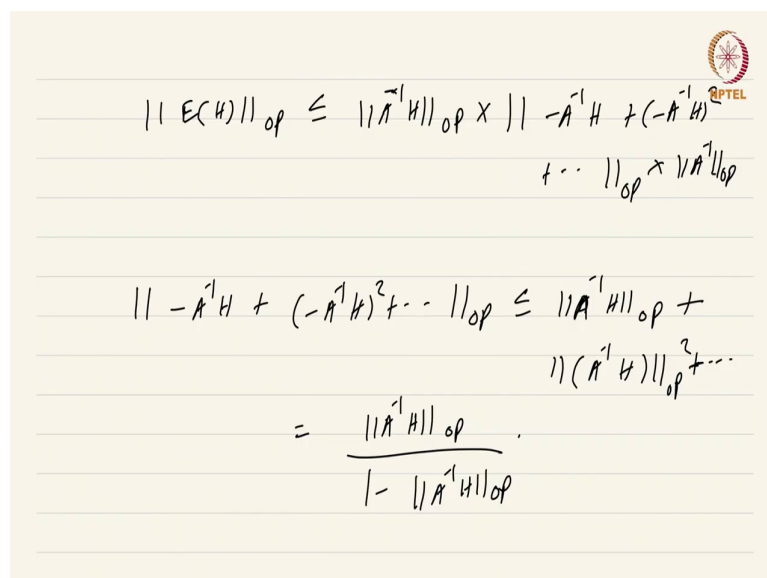 NPTEL
|| E(H) ||op ≤ || A⁻¹H ||op × || -A⁻¹H + (-A⁻¹H)²
+ ·· ||op × || A⁻¹ ||op
|| -A⁻¹H + (-A⁻¹H)² + ·· ||op ≤ || A⁻¹H ||op +
|| (A⁻¹H) ||op² + ···
= || A⁻¹H ||op .
1 - || A⁻¹H ||op